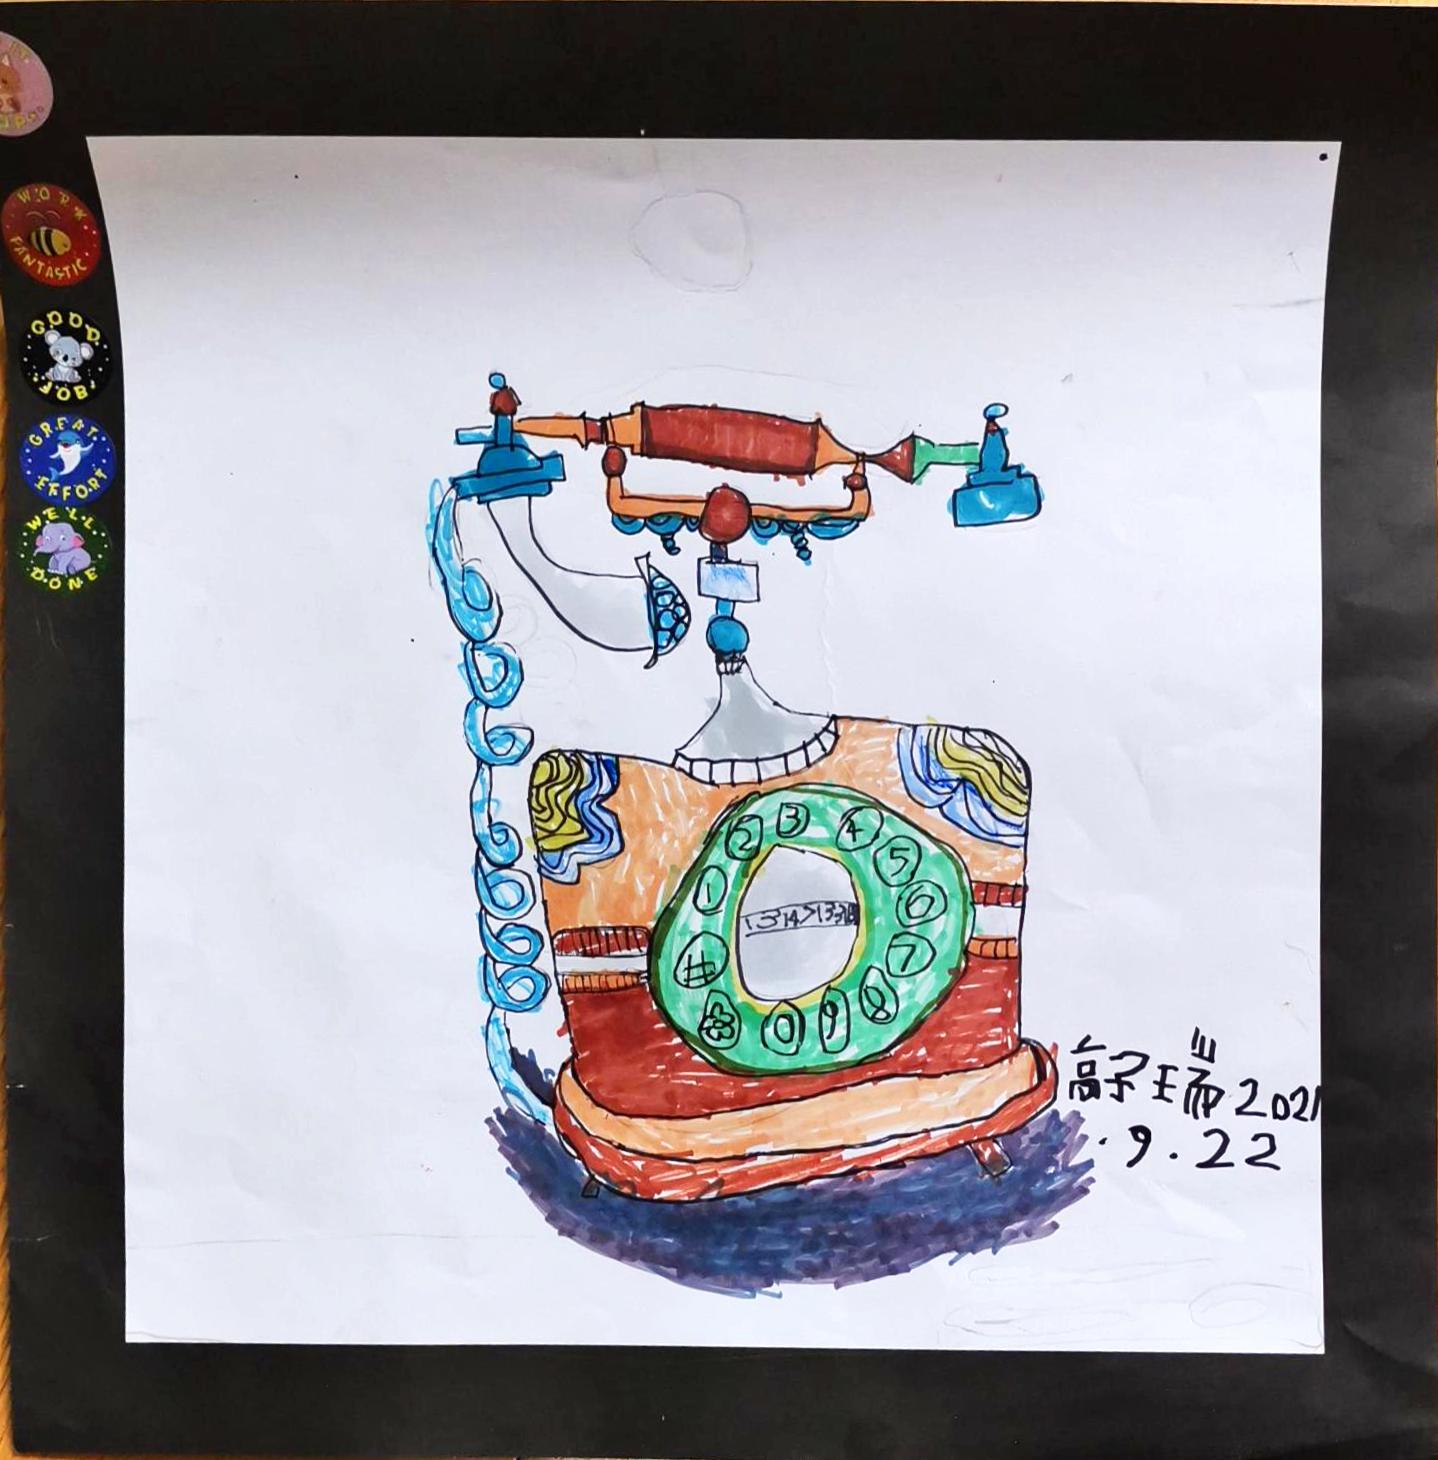 WORK
FANTASTIC
GOOD
JOB!
GREAT
EFFORT
WELL
DONE
1
2
3
4
5
6
7
8
9
0
#
高子瑞 2021
.9.22